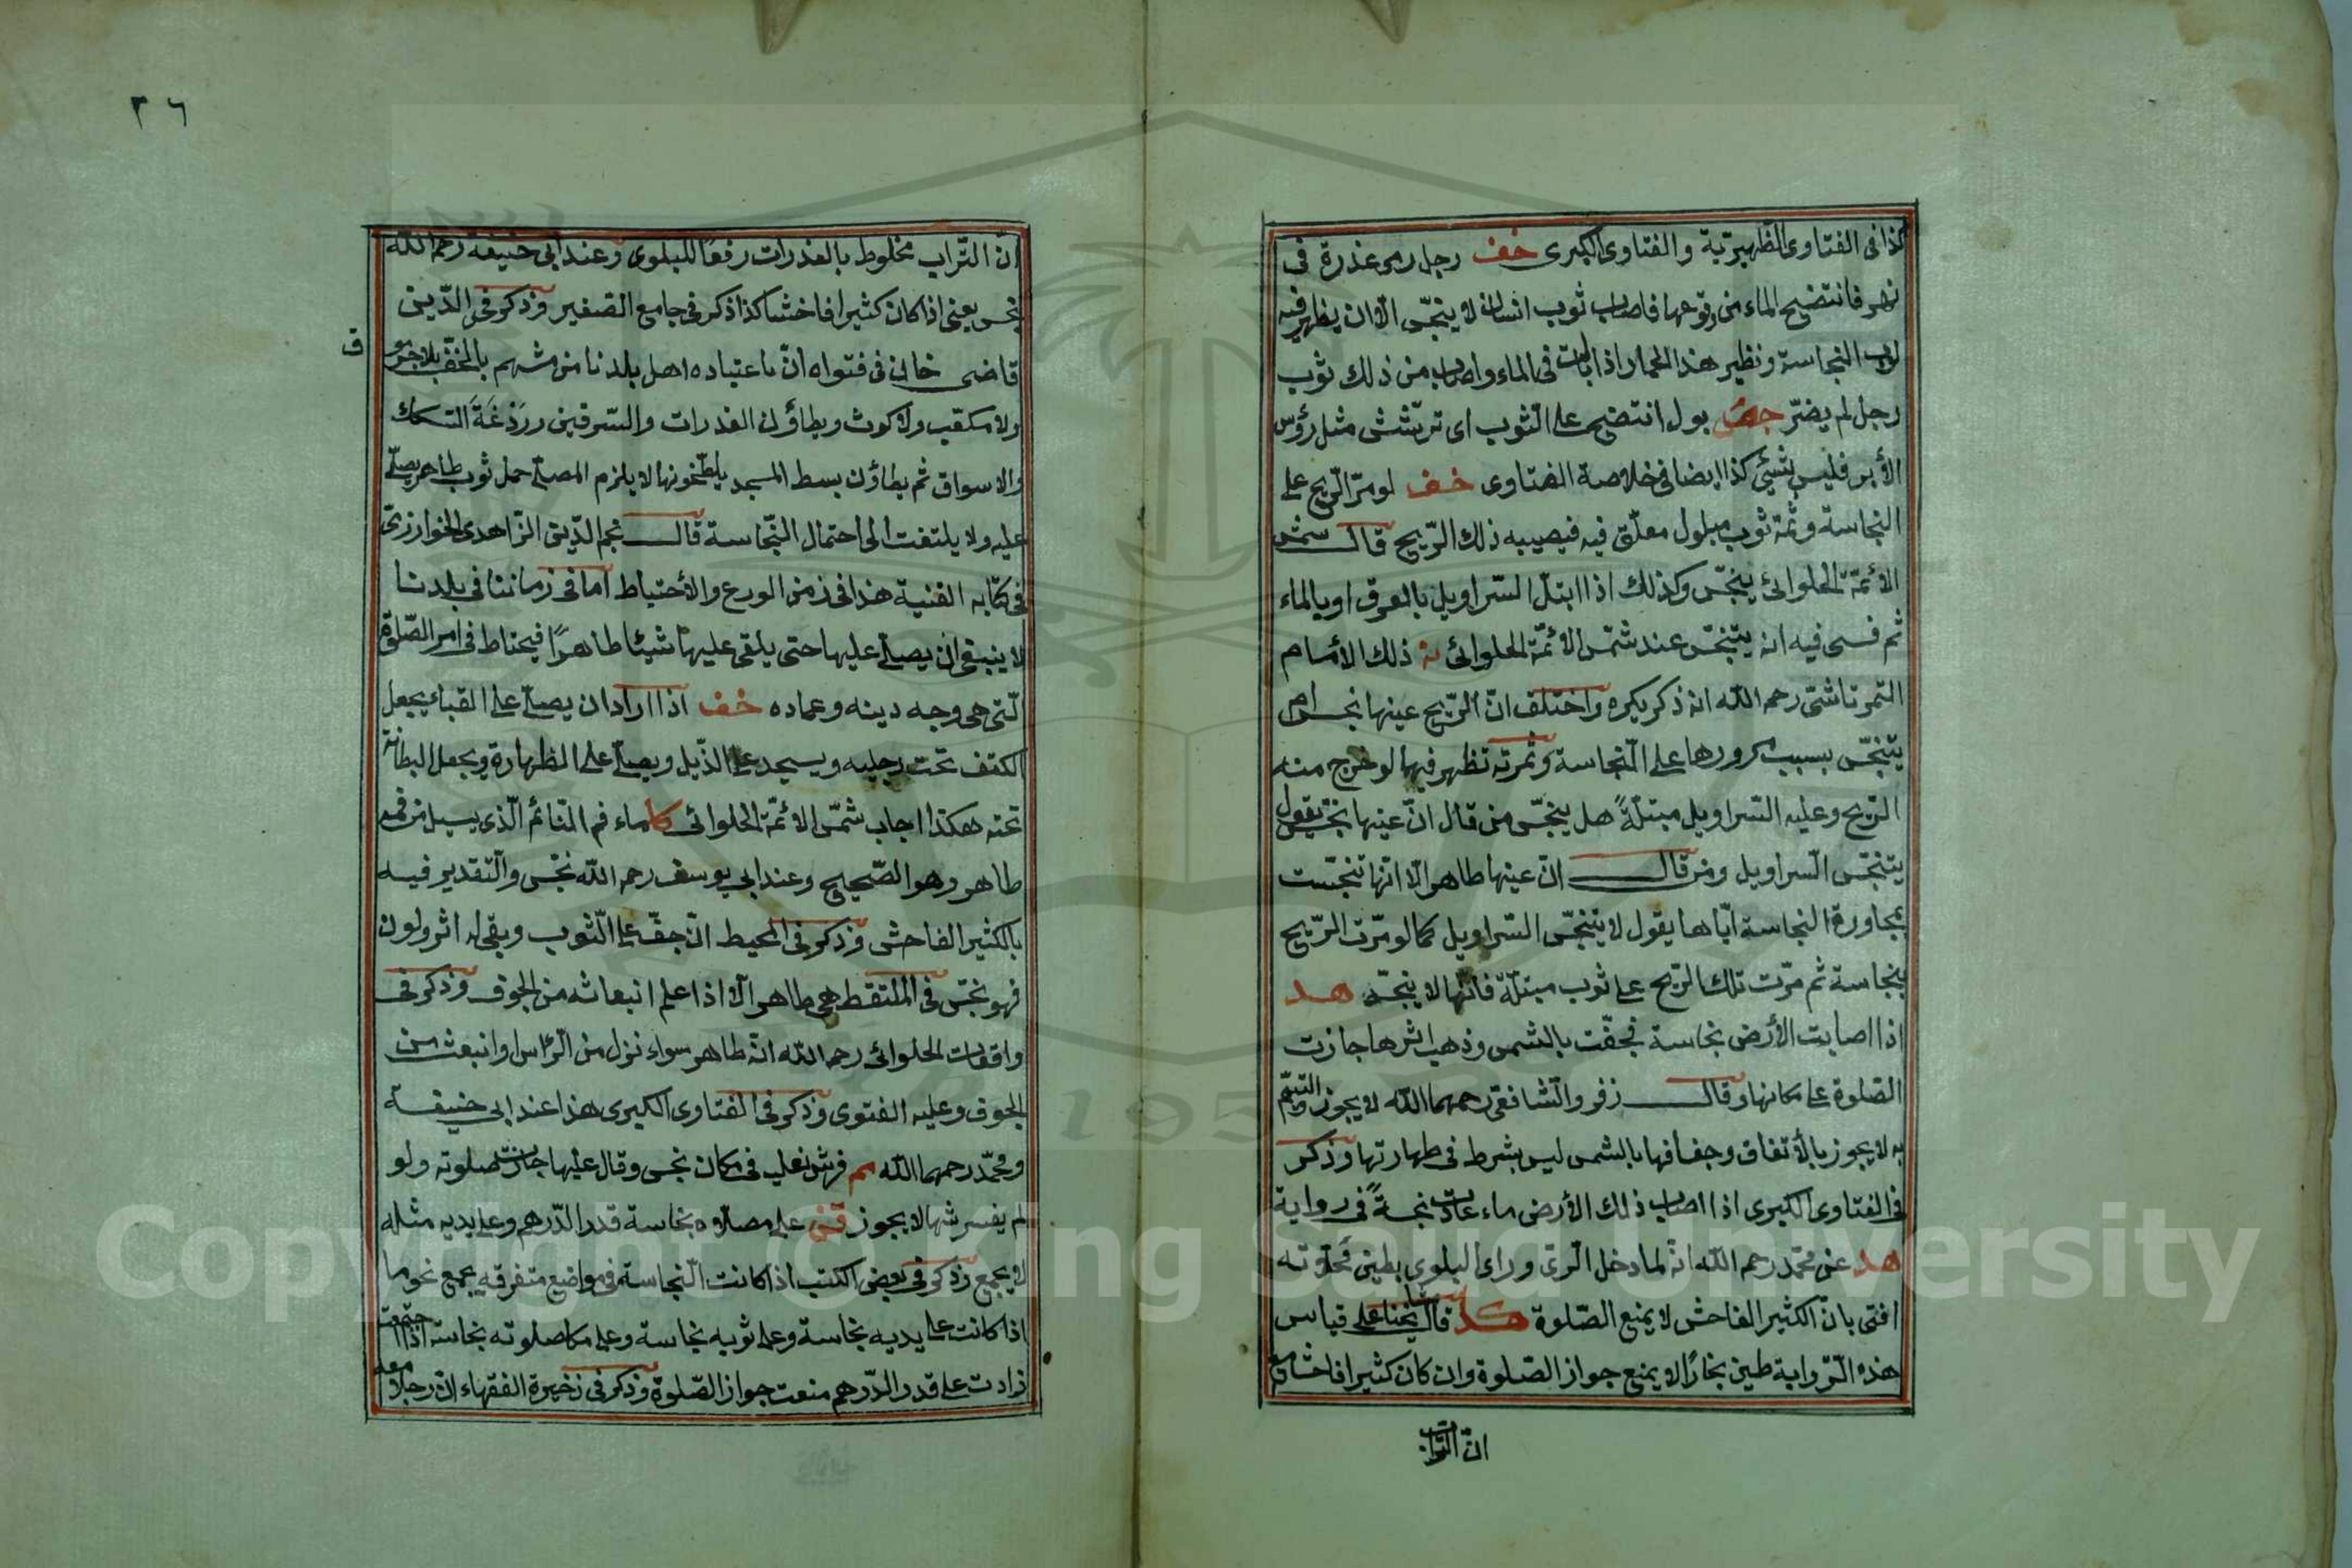 كذا فى الفتاوى الظهيرية والفتاوى الكبرى خف رجل رمى عذرة فى
نهر فانتضح الماء من وقوعها فاصاب ثوب انسان لا ينجس الا ان يظهر فيه
لون النجاسة ونظير هذا الحمار اذا بالت فى الماء واصاب من ذلك ثوب
رجل لم يضر بول انتضح على الثوب اى ترشش مثل رؤس
الأبر فليس بشيئ كذا ايضا فى خلاصة الفتاوى خف لو مر الريح على
النجاسة وثمة ثوب مبلول معلق فيه فيصيبه ذلك الريح قال شمس
الأئمة الحلوائى ينجس وكذلك اذا ابتل السراويل بالعرق او بالماء
ثم فسى فيه انه يتنجس عند شمس الأئمة الحلوائى ذلك الأمام
التمرتاشى رحمه الله انه ذكر بكره واختلف ان الريح عينها نجس ام
يتنجس بسبب مرورها على النجاسة وثمرته تظهر فيما لو خرج منه
الريح وعليه السراويل مبتلة هل ينجس من قال ان عينها نجس يقول
يتنجس السراويل ومن قال ان عينها طاهر الا انها تنجست
بمجاورة النجاسة اياها يقول لا يتنجس السراويل كما لو مرت الريح
بنجاسة ثم مرت تلك الريح على ثوب مبتلة فانها لا ينجسه هد
اذا اصابت الأرض نجاسة فجفت بالشمس وذهب اثرها جازت
الصلوة على مكانها وقال زفر والشافعى رحمهما الله لا يجوز والتيمم
به لا يجوز بالأتفاق وجفافها بالشمس ليس بشرط فى طهارتها وذكر
فى الفتاوى الكبرى اذا اصاب ذلك الأرض ماء عادت نجسة فى رواية
هد عن محمد رحمه الله انه لما دخل الرى وراى البلوى بطين محلاته
افتى بان الكثير الفاحش لا يمنع الصلوة كد قال مشايخنا على قياس
هذه الرواية طين بخارا لا يمنع جواز الصلوة وان كان كثيرا فاحشا مع
ان التراب
٢٦
ان التراب مخلوط بالعذرات رفعا للبلوى وعند ابى حنيفة رحمه الله
نجس يعنى اذا كان كثيرا فاحشا كذا ذكر فى جامع الصغير وذكر فخر الدين
ق
قاضى خان فى فتواه ان ما اعتياده اهل بلدنا من مشيهم بالخف بلا جرموق
ولا مكعب ولا كوث ويطأون العذرات والسرقين وردغة السكك
والاسواق ثم يطأون بسط المسجد يلطخونها لا يلزم المصلى حمل ثوب طاهر يصلى
عليه ولا يلتفت الى احتمال النجاسة قال نجم الدين الزاهدى الخوارزمى
فى كتابه القنية هذا فى زمن الورع والأحتياط اما فى زماننا فى بلدنا
لا ينبغى ان يصلى عليها حتى يلقى عليها شيئا طاهرا فيحتاط فى امر الصلوة
التى هى وجه دينه وعماده خف اذا اراد ان يصلى على القباء يجعل
الكتف تحت رجليه ويسجد على الذيل ويصلى على الظهارة ويجعل البطانة
تحته هكذا اجاب شمس الأئمة الحلوائى كا ماء فم النائم الذى يسيل من فمه
طاهر وهو الصحيح وعند ابى يوسف رحمه الله نجس والتقدير فيه
بالكثير الفاحش وذكر فى المحيط ان جف على الثوب وبقى له اثر ولون
فهو نجس فى الملتقط هى طاهر الا اذا علم انبعاثه من الجوف وذكر فى
واقعات الحلوائى رحمه الله انه طاهر سواء نزل من الرأس او انبعث من
الجوف وعليه الفتوى وذكر فى الفتاوى الكبرى هذا عند ابى حنيفة
ومحمد رحمهما الله م فرش نعليه فى مكان نجس وقال عليها جازت صلوته ولو
لم يفرشها لا يجوز قن على مصلاه نجاسة قدر الدرهم وعلى يديه مثله
لا يجمع وذكر فى بعض الكتب اذا كانت النجاسة فى مواضع متفرقه يجمع نحو ما
اذا كانت على يديه نجاسة وعلى ثوبه نجاسة وعلى مكان صلوته نجاسة اذا اجتمعت
زادت على قدر الدرهم منعت جواز الصلوة وذكر فى ذخيرة الفقهاء ان رجلا معه
Copyright © King Saud University
195